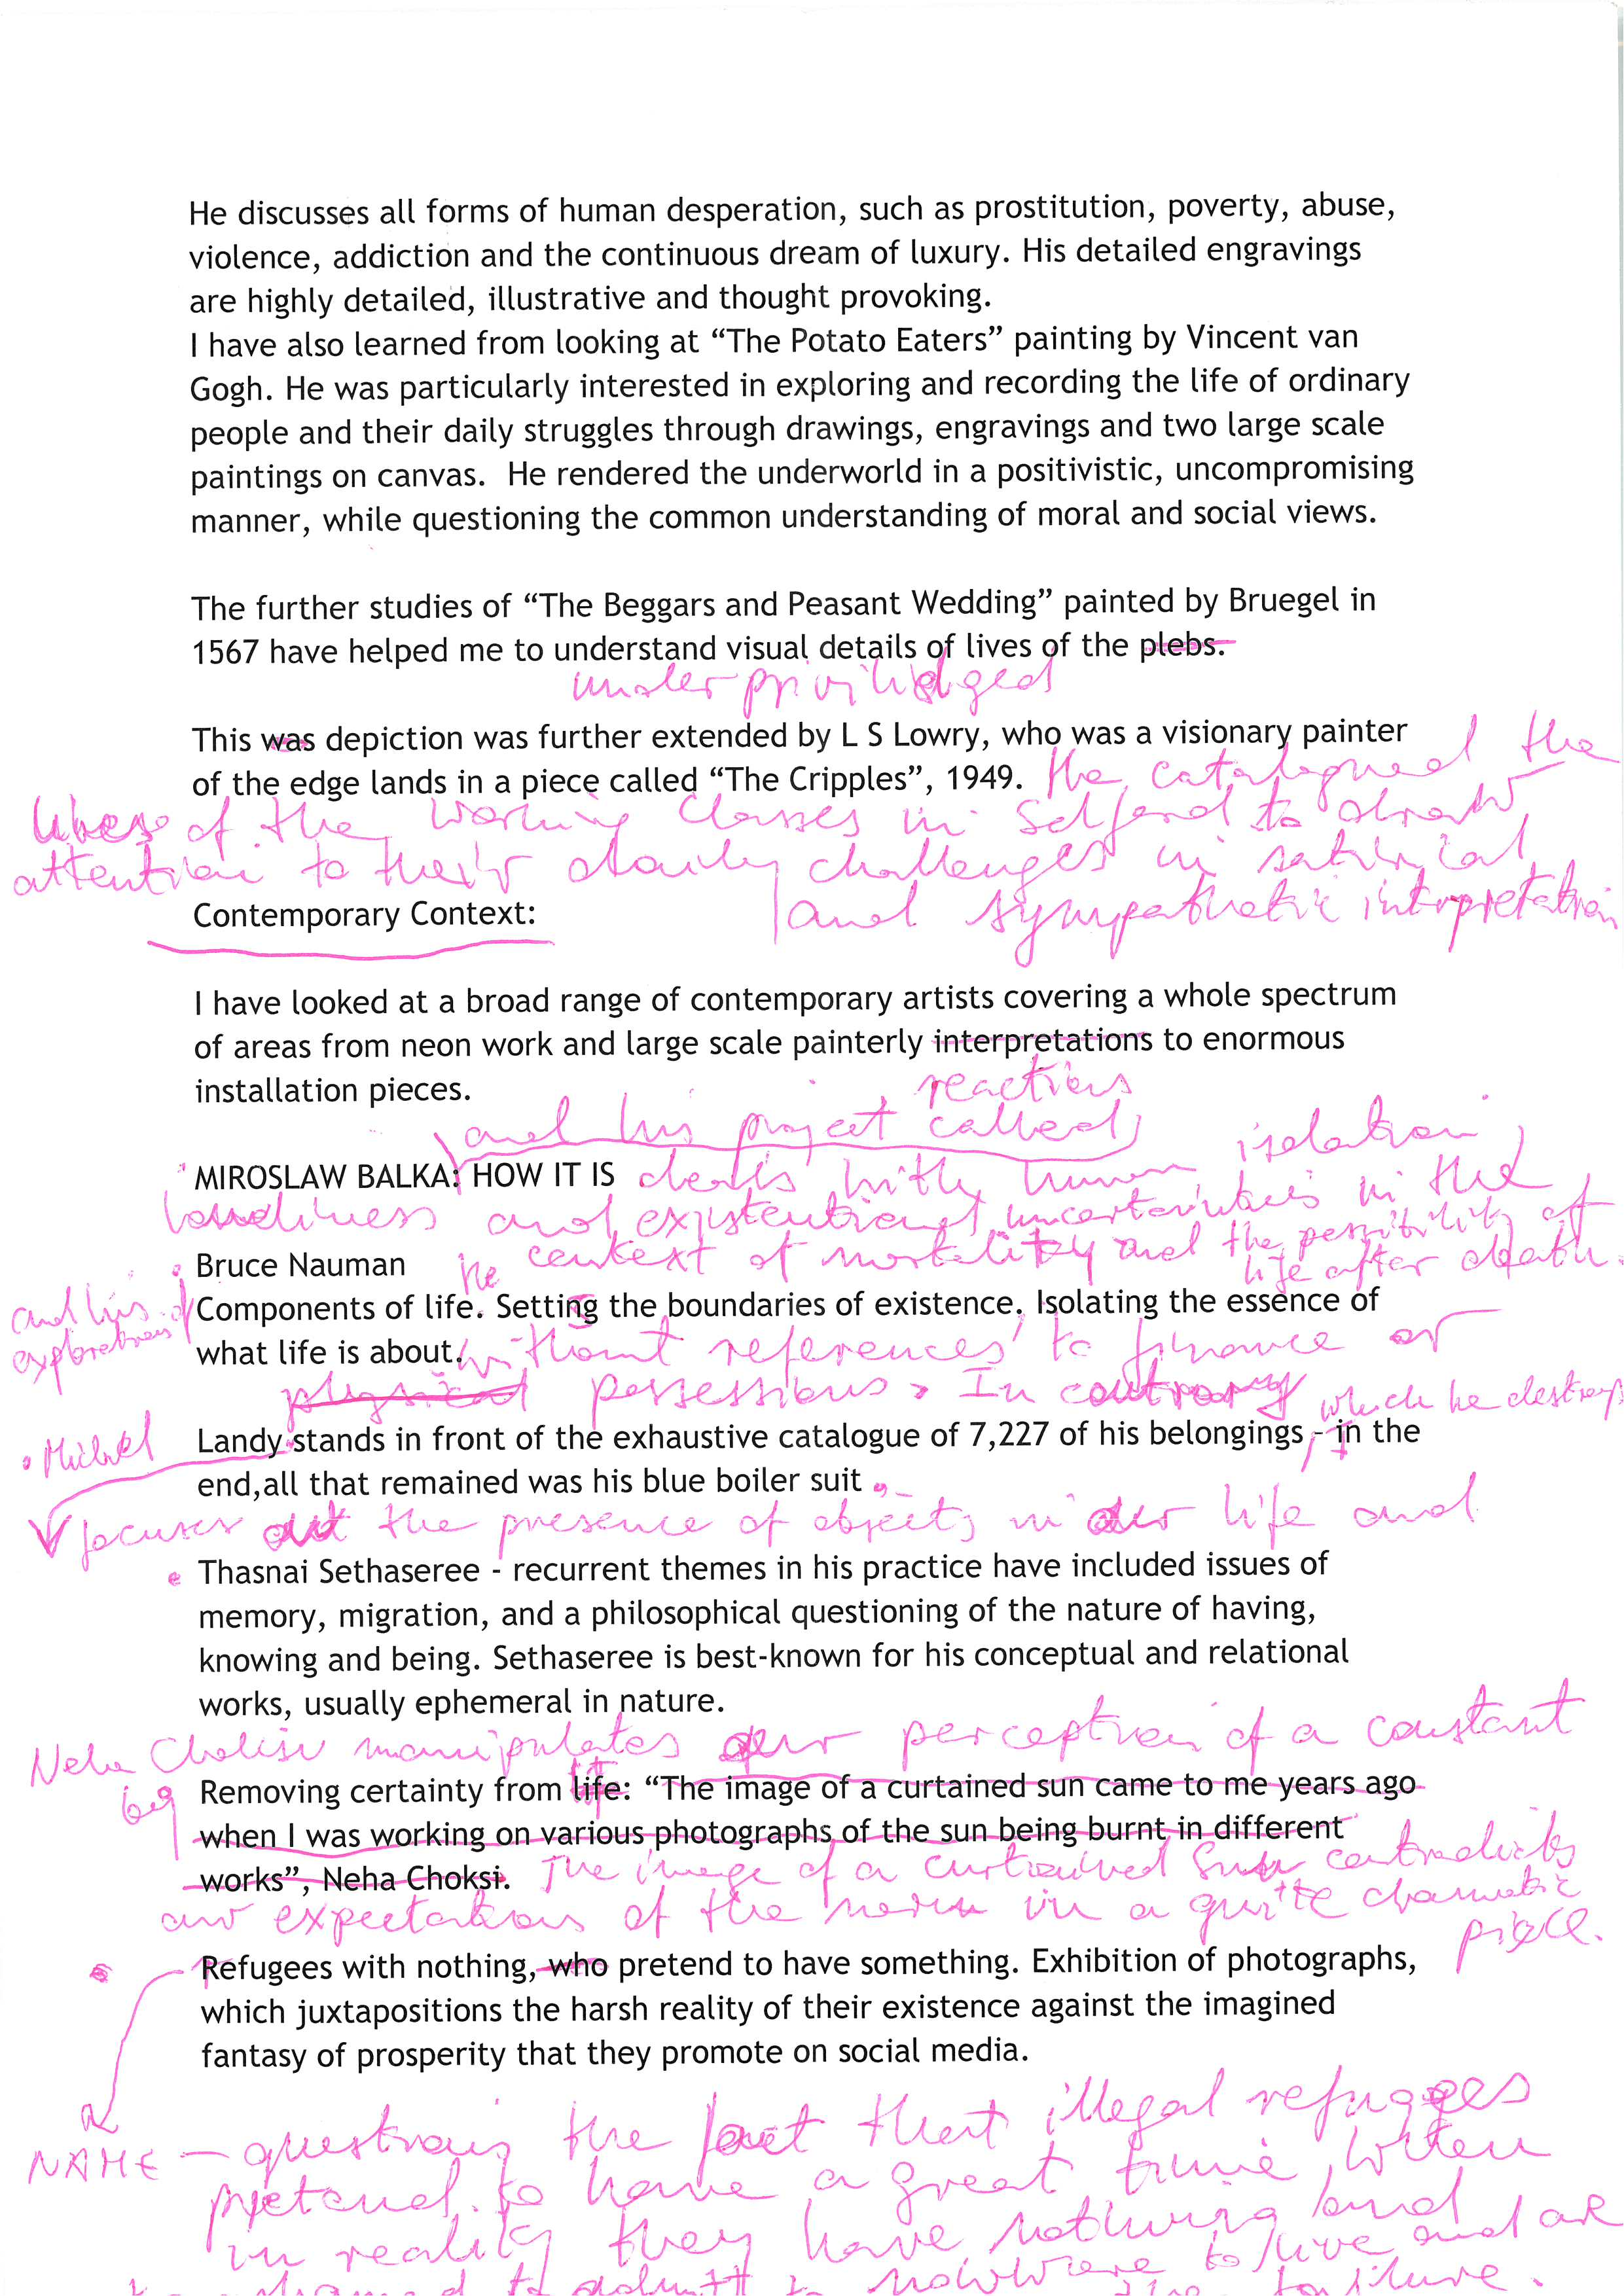 He discusses all forms of human desperation, such as prostitution, poverty, abuse,
violence, addiction and the continuous dream of luxury. His detailed engravings
are highly detailed, illustrative and thought provoking.
I have also learned from looking at “The Potato Eaters” painting by Vincent van
Gogh. He was particularly interested in exploring and recording the life of ordinary
people and their daily struggles through drawings, engravings and two large scale
paintings on canvas.  He rendered the underworld in a positivistic, uncompromising
manner, while questioning the common understanding of moral and social views.
The further studies of “The Beggars and Peasant Wedding” painted by Bruegel in
1567 have helped me to understand visual details of lives of the plebs.
underprivilidged
This was depiction was further extended by L S Lowry, who was a visionary painter
of the edge lands in a piece called “The Cripples”, 1949. He catalogued the
lives of the working classes in Salford to draw
attention to their daily challenges in satirical
and sympathetic interpretation
Contemporary Context:
I have looked at a broad range of contemporary artists covering a whole spectrum
of areas from neon work and large scale painterly interpretations to enormous
installation pieces.
reactions
and his project called
MIROSLAW BALKA: HOW IT IS deals with human isolation,
loneliness and existential uncertainties in the
context of mortality and the possibility of
life after death.
Bruce Nauman
and his explorations of
Components of life. Setting the boundaries of existence. Isolating the essence of
what life is about. without references to finance or
physical possessions. In contrary
which he destroys
Michael
Landy stands in front of the exhaustive catalogue of 7,227 of his belongings - in the
end,all that remained was his blue boiler suit
focuses the presence of objects in our life and
Thasnai Sethaseree - recurrent themes in his practice have included issues of
memory, migration, and a philosophical questioning of the nature of having,
knowing and being. Sethaseree is best-known for his conceptual and relational
works, usually ephemeral in nature.
Neha Choksi manipulates our perception of a constant
by
Removing certainty from life: “The image of a curtained sun came to me years ago
when I was working on various photographs of the sun being burnt in different
works”, Neha Choksi. The image of a curtained sun contradicts
our expectations of the norm in a quite dramatic
piece.
Refugees with nothing, who pretend to have something. Exhibition of photographs,
which juxtapositions the harsh reality of their existence against the imagined
fantasy of prosperity that they promote on social media.
NAME - questions the fact that illegal refugees
pretend to have a great time, when
in reality they have nothing and
nowhere to live and are